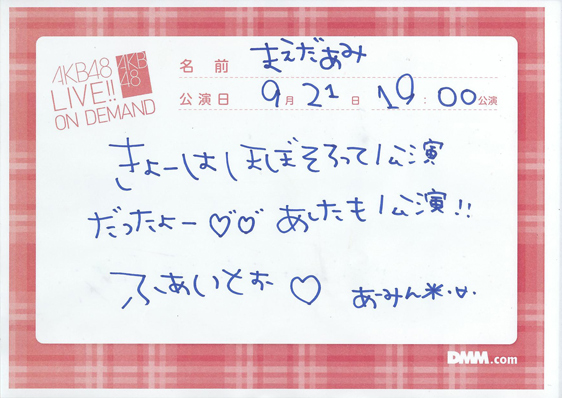 AKB48
LIVE!!
ON DEMAND
AKB
48
名前 まえだあみ
公演日 9月21日 19:00公演
きょーはほぼそろって公演
だったよー♡♡ あしたも公演!!
ふぁいとぉー♡ あーみん*・ω・
DMM.com